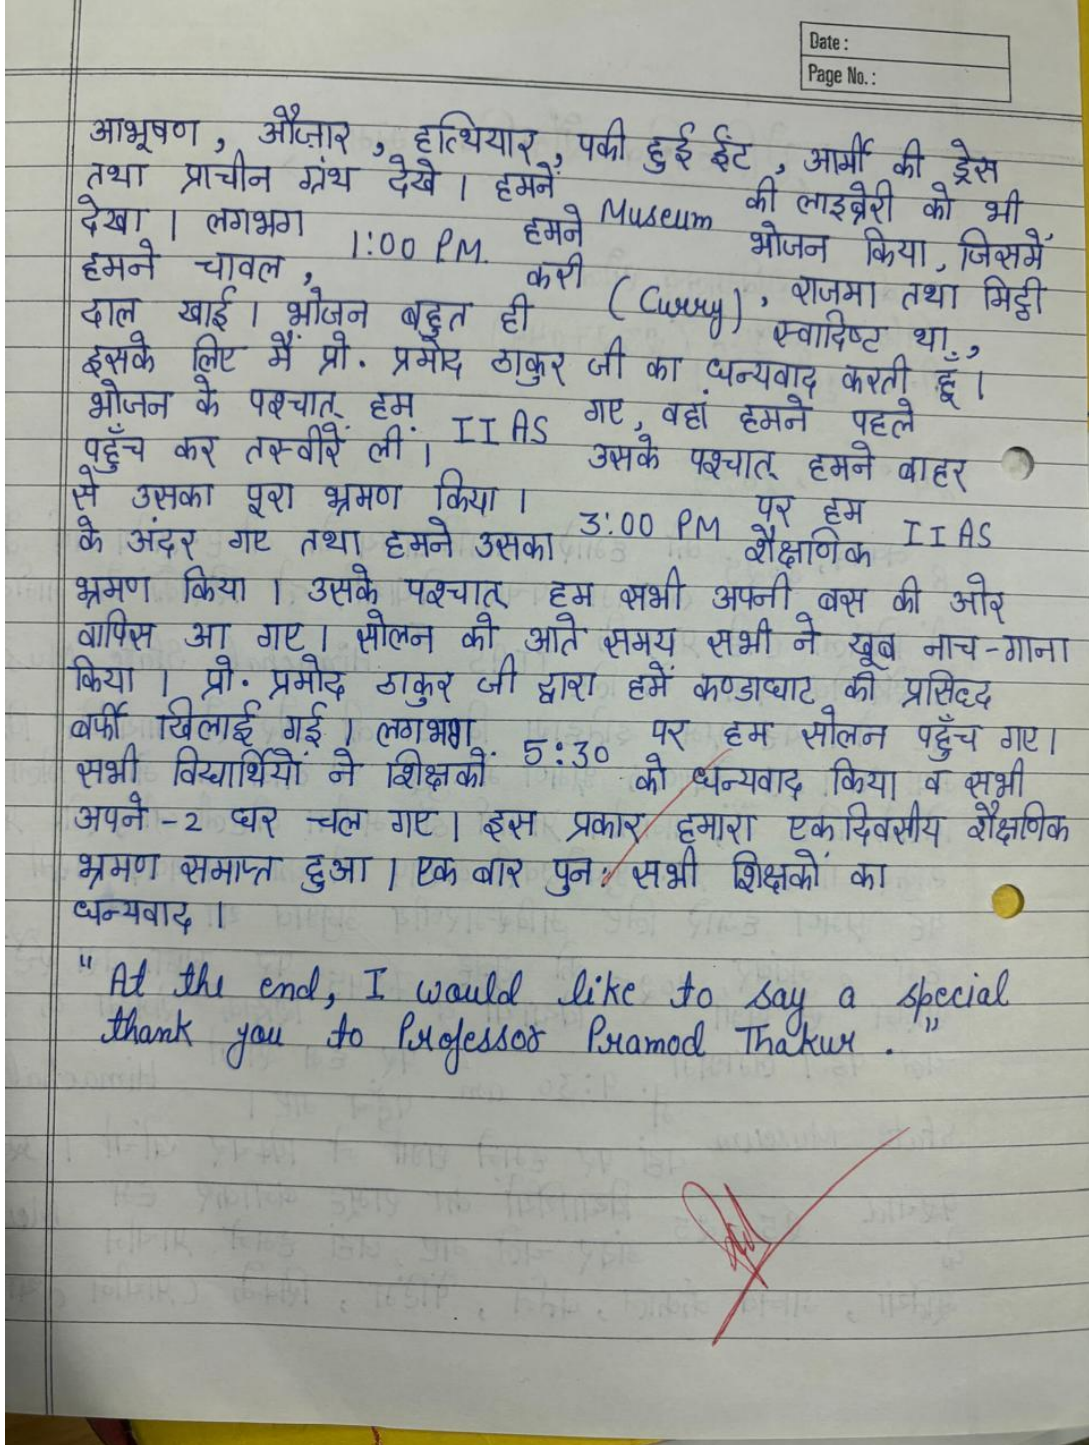 Date :
Page No. :
आभूषण, औज़ार, हत्थियार, पकी हुई ईंट, आर्मी की ड्रेस
तथा प्राचीन ग्रंथ देखे। हमनें Museum की लाइब्रेरी को भी
देखा। लगभग 1:00 PM. हमने भोजन किया, जिसमें
हमने चावल, करी (Curry), राजमा तथा मिट्ठी
दाल खाई। भोजन बहुत ही स्वादिष्ट था,
इसके लिए मैं प्रो. प्रमोद ठाकुर जी का धन्यवाद करती हूँ।
भोजन के पश्चात् हम IIAS गए, वहां हमने पहले
पहुँच कर तस्वीरें लीं। उसके पश्चात् हमने बाहर
से उसका पूरा भ्रमण किया। 3:00 PM पर हम IIAS
के अंदर गए तथा हमने उसका शैक्षणिक
भ्रमण किया। उसके पश्चात् हम सभी अपनी बस की ओर
वापिस आ गए। सोलन को आते समय सभी ने खूब नाच-गाना
किया। प्रो. प्रमोद ठाकुर जी द्वारा हमें कण्डाघाट की प्रसिद्द
बर्फी खिलाई गई। लगभग 5:30 पर हम सोलन पहुँच गए।
सभी विद्यार्थियों ने शिक्षकों को धन्यवाद किया व सभी
अपने-2 घर चल गए। इस प्रकार हमारा एकदिवसीय शैक्षणिक
भ्रमण समाप्त हुआ। एक बार पुन: सभी शिक्षकों का
धन्यवाद।
"At the end, I would like to say a special
thank you to Professor Pramod Thakur."